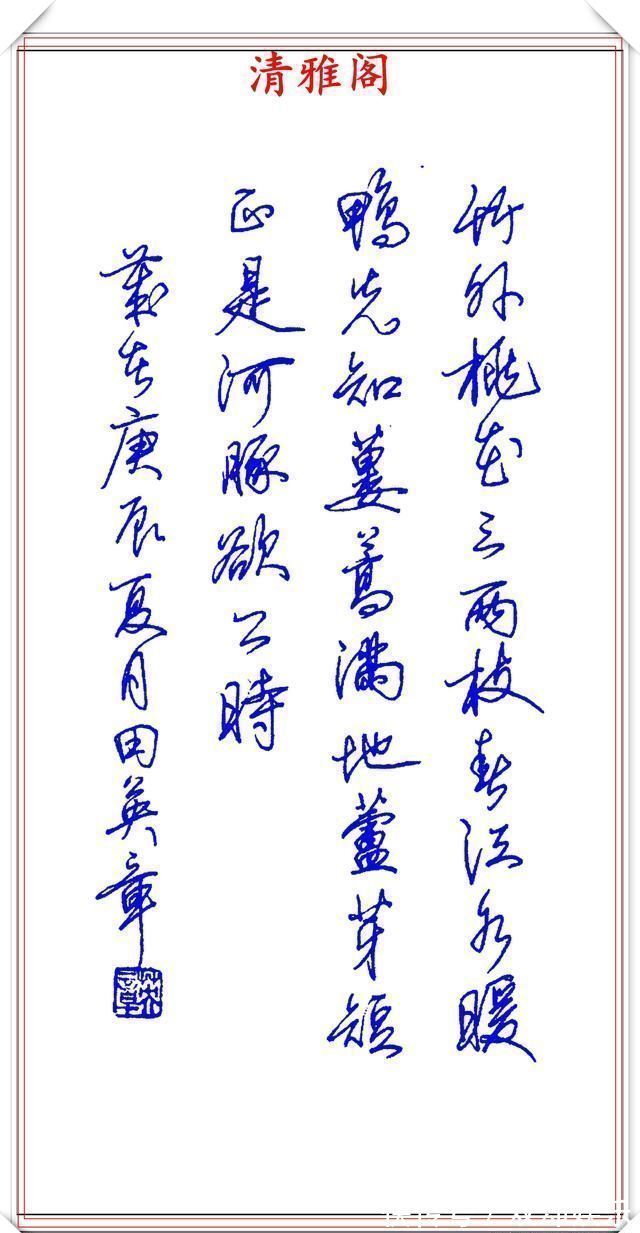 清雅阁
竹外桃花三兩枝春江水暖
鴨先知蔞蒿滿地蘆芽短
正是河豚欲上時
歲在庚辰夏月田英章